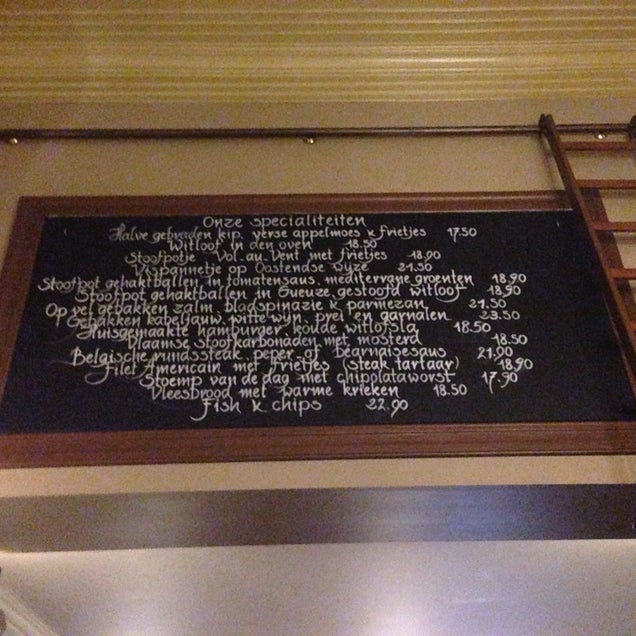 Onze specialiteiten
Halve gebraden kip, verse appelmoes & frietjes 17.50
Witloof in den oven 18.50
Stoofpotje Vol.au.Vent met frietjes 18.90
Vispannetje op Oostendse wijze 21.50
Stoofpot gehaktballen in tomatensaus, mediterrane groenten 18.90
Stoofpot gehaktballen in Gueuze, gestoofd witloof 18,90
Op vel gebakken zalm, bladspinazie & parmezan 21.50
Gebakken kabeljauw, witte wijn, prei en garnalen 23.50
Huisgemaakte hamburger, koude witlofsla 18.50
Vlaamse stoofkarbonaden met mosterd 18.50
Belgische rundssteak, peper- of Bearnaisesaus 21.90
Filet Americain met frietjes (steak tartaar) 18.90
Stoemp van de dag met chippolataworst 17.90
Vleesbrood met warme krieken 18.50
Fish & chips 22.90